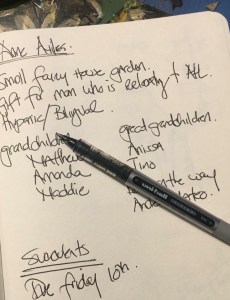 Small fairy house garden.
Gift for mom who is relocating + ATL.
Hispanic / Bilingual.
grandchildren great grandchildren.
Matthew Anissa
Amanda Tino
Maddie on the way
uni-ball
Succulents
Due friday 10th.